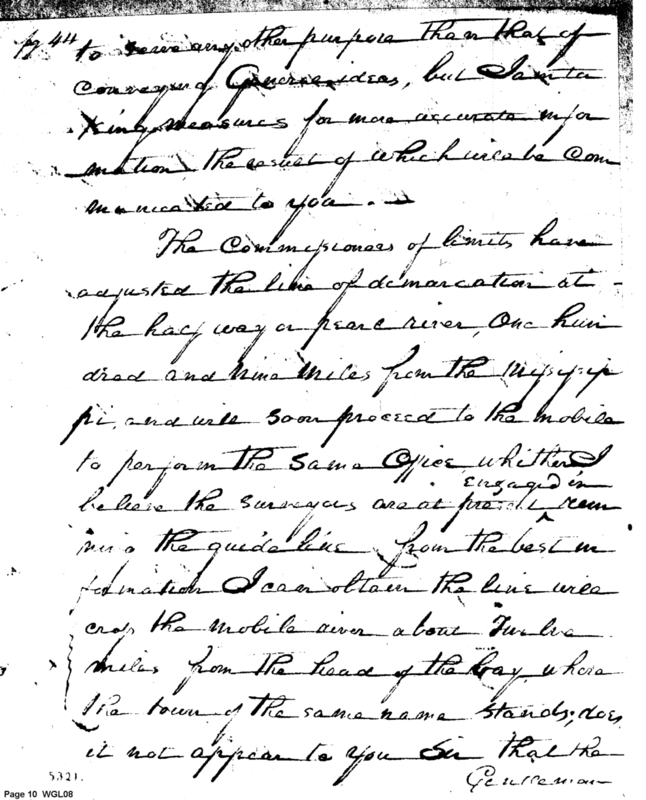 pg 44
to serve any other purpose than that of
conveying General ideas, but I am ta
king measures for more accurate infor
mation the result of which will be Com
municated to you.
The Commissioners of limits have
adjusted the line of demarcation at
the half way or pearl river, One hun
dred and nine miles from the Missisip
pi, and will soon proceed to the mobile
to perform the same Office, whither I
engaged in
believe the surveyors are at present ^ run
ning the guide line from the best in
formation I can obtain the line will
cross the mobile river about Twelve
miles from the head of the bay where
the town of the same name stands; does
it not appear to you Sir that the
Gentleman
5321.
Page 10 WGL08